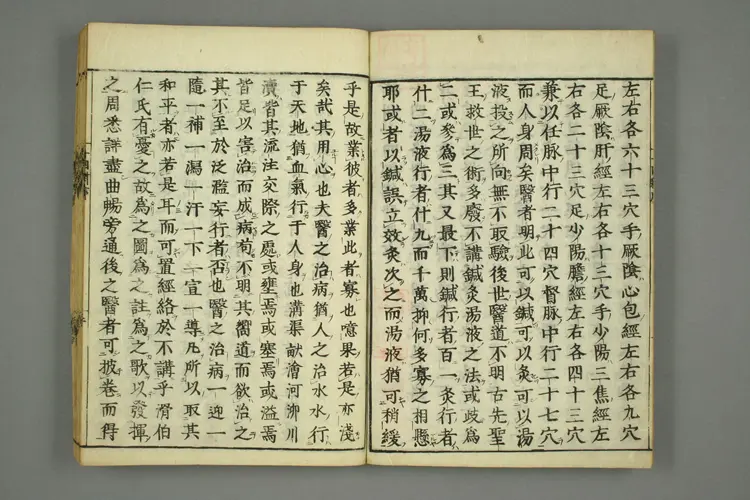 左右各六十三穴手厥陰心包經左右各九穴
足厥陰肝經左右各十三穴手少陽三焦經左
右各二十三穴足少陽膽經左右各四十三穴
兼以任脉中行二十四穴督脉中行二十七穴
而人身周矣醫者明此可以鍼可以灸可以湯
液投之所向無不取驗後世醫道不明古先聖
王救世之術多廢不講鍼灸湯液之法或歧為
二或參為三其又最下則鍼行者百一灸行者
什二湯液行者什九而千萬抑何多寡之相懸
耶或者以鍼誤立效灸次之而湯液猶可稍緩
乎是故業彼者多業此者寡也噫果若是亦淺
矣哉其用心也夫醫之治病猶人之治水水行
于天地猶血氣行于人身也溝渠畎澮河泖川
瀆皆其流注交際之處或壅焉或塞焉或溢焉
皆足以害治而成病苟不明其嚮道而欲治之
其不至於泛濫妄行者否也醫之治病一迎一
隨一補一漏一汗一下一宣一導凡所以取其
和平者亦若是耳而可置經絡於不講乎滑伯
仁氏有憂之故為之圖為之註為之歌以發揮
之周悉詳盡曲暢旁通後之醫者可披卷而得